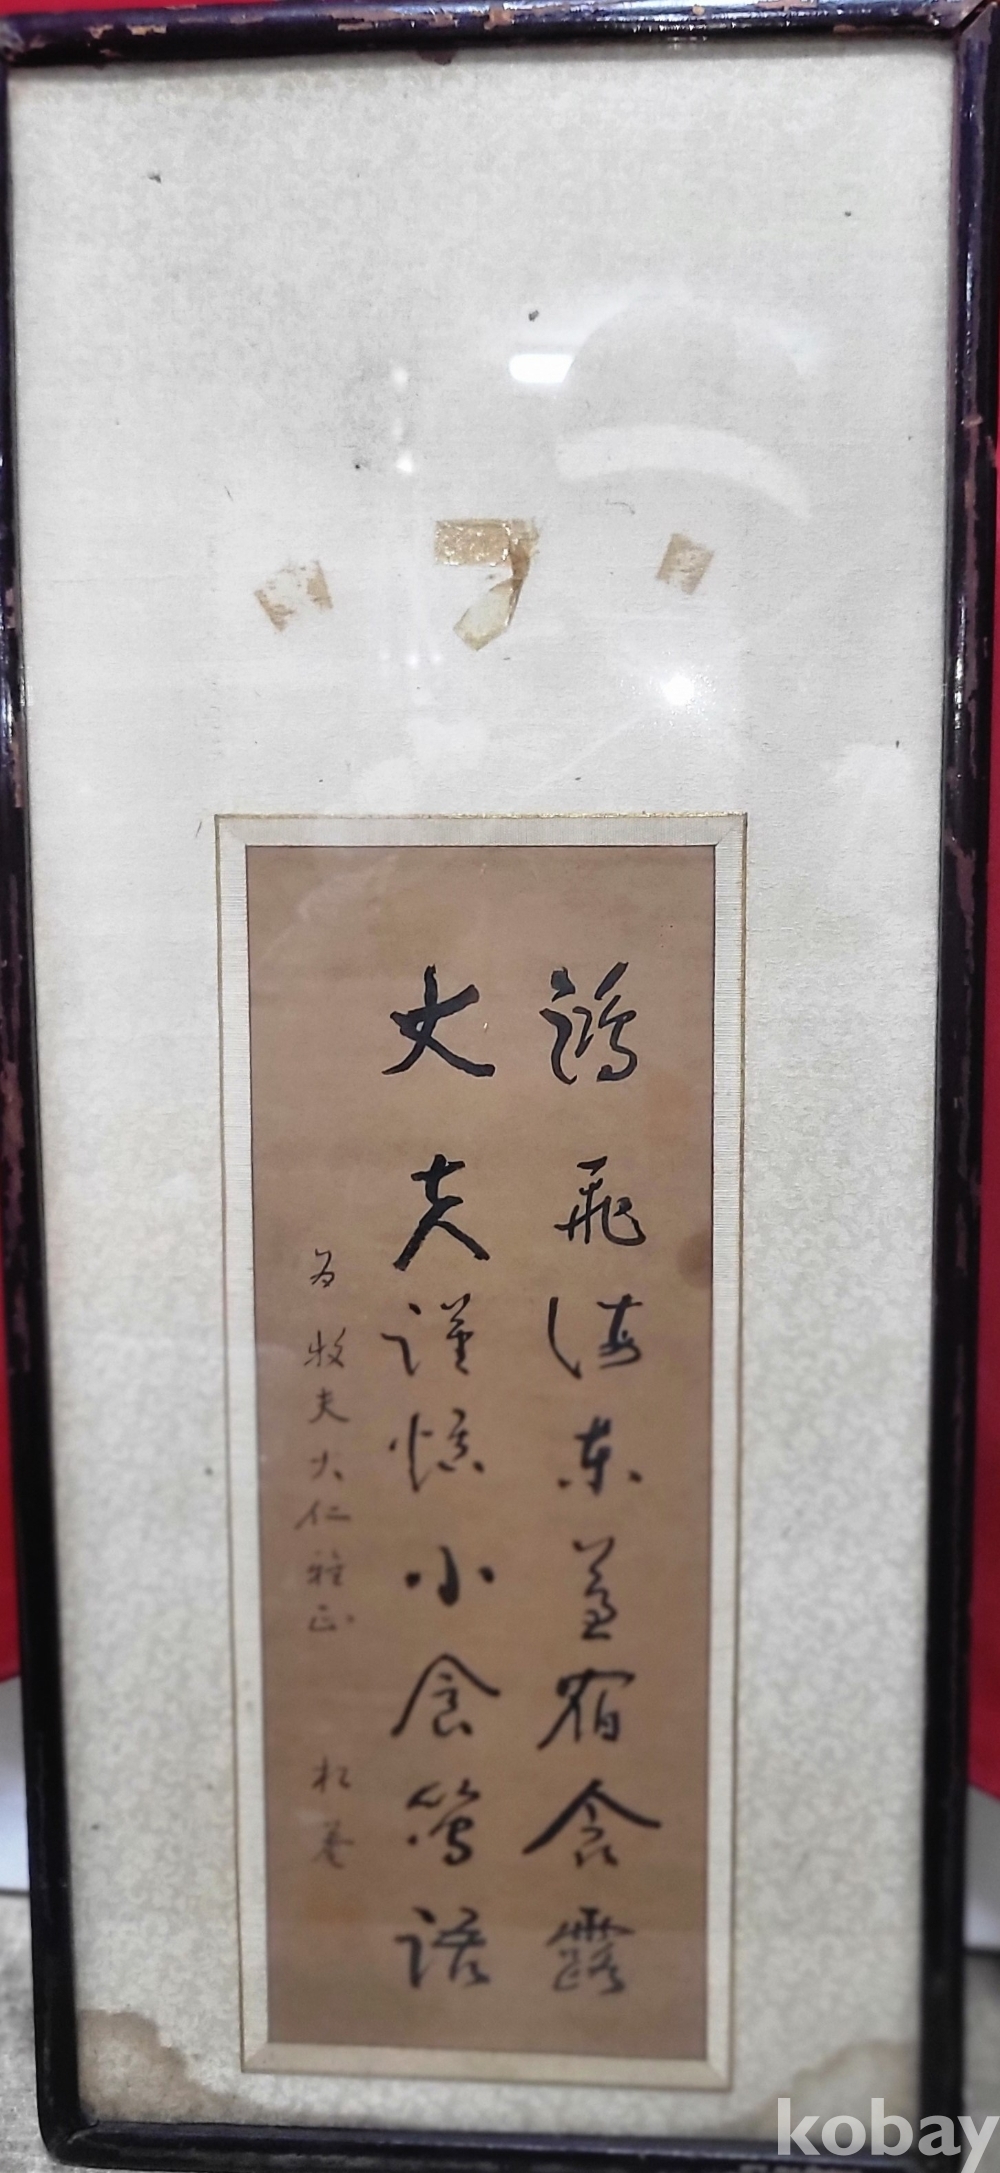 鴻飛海東蓋宿含露
丈夫謹慎小食篤語
為 牧夫大仁雅正
松菴
kobay